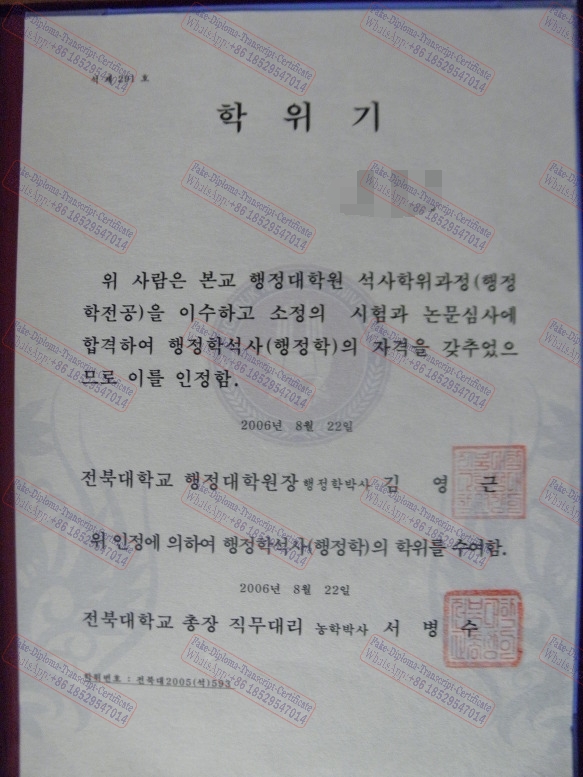 석 제 291 호
학 위 기
위 사람은 본교 행정대학원 석사학위과정(행정
학전공)을 이수하고 소정의 시험과 논문심사에
합격하여 행정학석사(행정학)의 자격을 갖추었으
므로 이를 인정함.
2006년 8월 22일
전북대학교 행정대학원장 행정학박사 김 영 근
위 인정에 의하여 행정학석사(행정학)의 학위를 수여함.
2006년 8월 22일
전북대학교 총장 직무대리 농학박사 서 병 수
학위번호 : 전북대2005(석)593
Fake-Diploma-Transcript-Certificate
WhatsApp:+86 18529547014